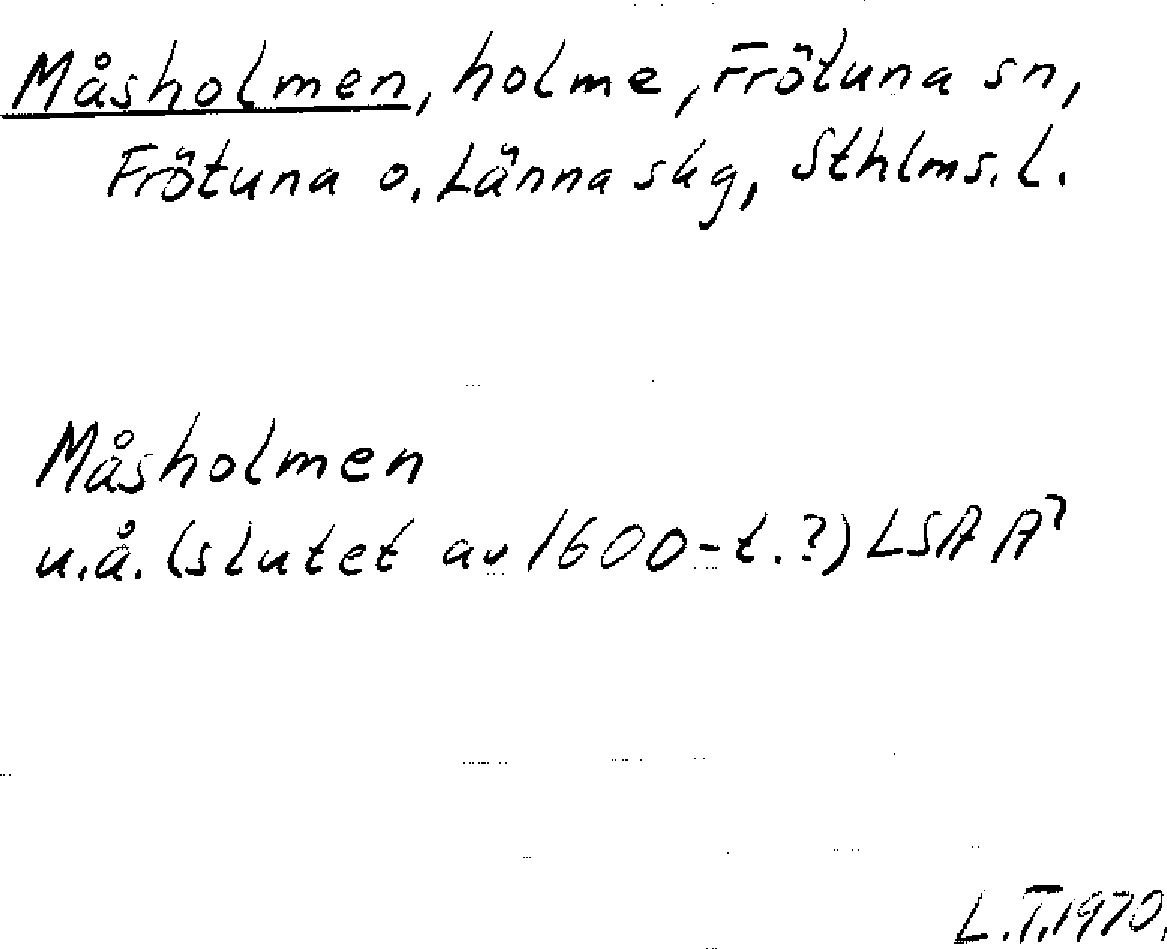 Måsholmen, holme, Frötuna sn,
Frötuna o. Länna skg, Sthlms. l.
Måsholmen
u.å. (slutet av 1600-t.?) LSA A⁷
L.T. 1970.